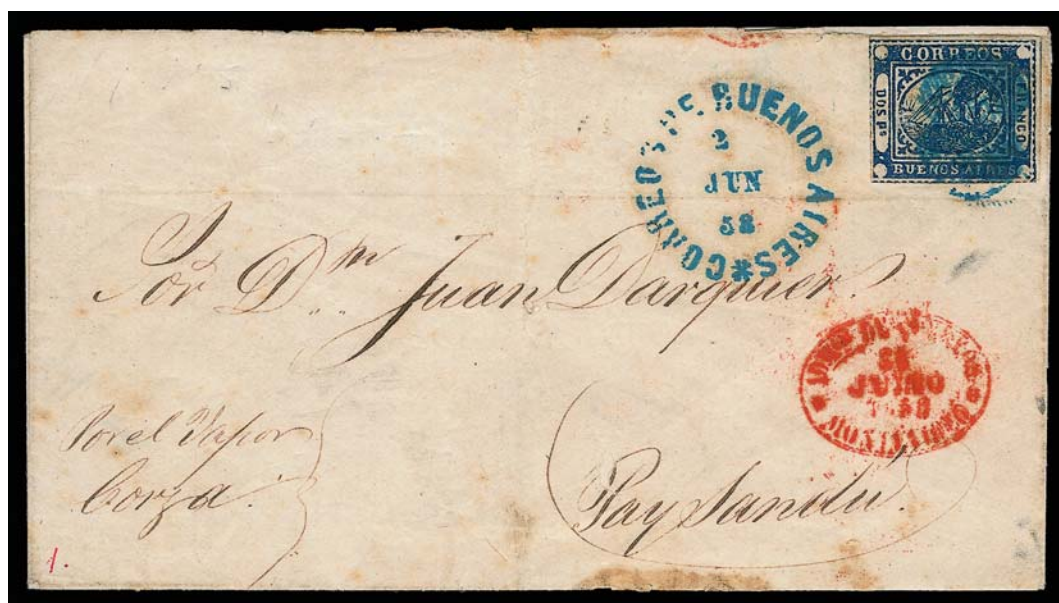 CORREOS
DOS Ps
FRANCO
BUENOS AIRES
CORREOS DE BUENOS AIRES
2
JUN
58
Sor Dn. Juan Darquier
JUNIO
MONTEVIDEO
Por el Vapor
Corza.
Paysandú.
1.